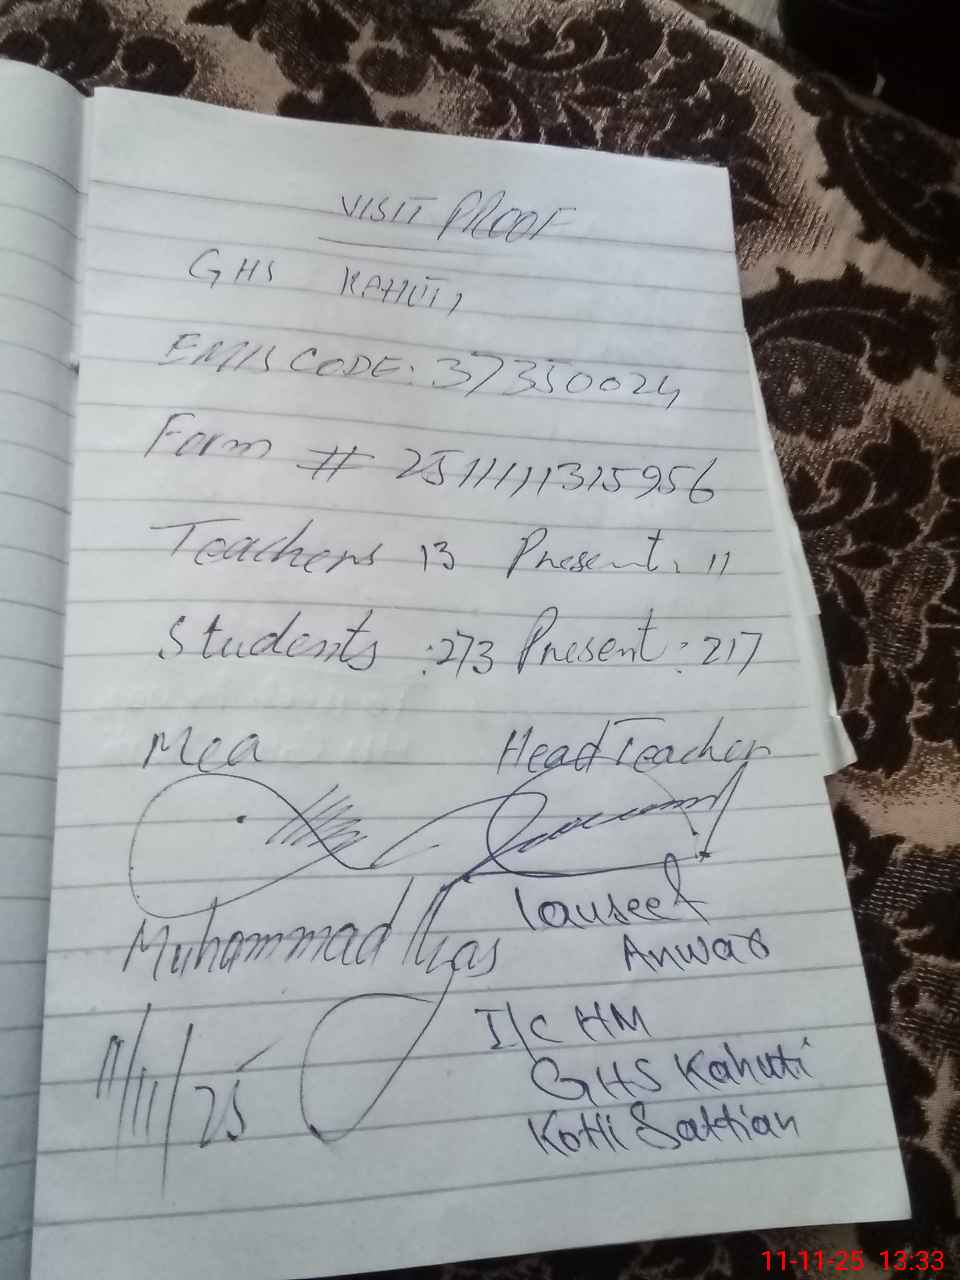 VISIT PROOF
GHS KAHUTI
EMIS CODE: 37350024
Form # 25111111315956
Teachers 13 Present: 11
Students :273 Present: 217
Mea Head Teacher
Muhammad Ilyas
Tauseef
Anwar
11/11/25
I/C HM
GHS Kahuti
Kotli Sattian
11-11-25 13:33